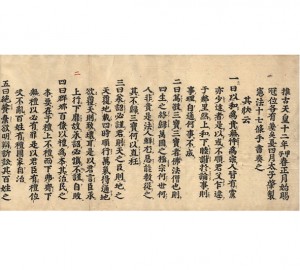 推古天皇十二年甲子春正月始賜
冠位各有差是月四月太子肇製
憲法十七條手書奏之
其状云
一曰以和為貴無忤為宗人皆有黨
亦少達者是以或不順君父乍違
于鄰里然上和下睦諧於論事則
事理自通何事不成
二曰篤敬三寶三寶者佛法僧也則
四生之終歸萬國之極宗何世何
人非貴是法人鮮尤惡能教從之
其不歸三寶何以直枉
三曰承詔必謹君則天之臣則地之
天覆地載四時順行萬氣得通地
欲覆天則致壞耳是以君言臣承
上行下靡故承詔必慎不謹自敗
四曰群卿百僚以禮為本其治民之
本要在乎禮上不禮而下弗齊下
無禮以必有罪是以君臣有禮位
次不亂百姓有禮國家自治
五曰絶餮棄欲明辯訴訟其百姓之